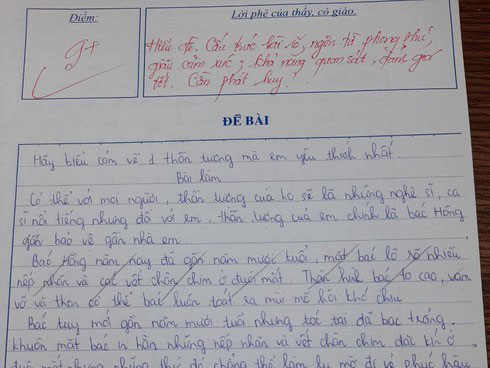 Điểm:
Lời phê của thầy, cô giáo.
9+
Hiểu đề. Cấu trúc bài rõ, ngôn từ phong phú,
giàu cảm xúc; khả năng quan sát, đánh giá
tốt. Cần phát huy!
ĐỀ BÀI
Hãy biểu cảm về 1 thần tượng mà em yêu thích nhất.
Bài làm
Có thể với mọi người, thần tượng của họ sẽ là những nghệ sĩ, ca
sĩ nổi tiếng nhưng đối với em, thần tượng của em chính là bác Hồng
dân bảo vệ gần nhà em.
Bác Hồng năm nay đã gần năm mươi tuổi, mặt bác lộ rõ nhiều
nếp nhăn và các vết chân chim ở đuôi mắt. Thân hình bác to cao,
vỡ và thân cơ thể bác luôn toát ra mùi mồ hôi khó chịu
Bác tuy mới gần năm mươi tuổi nhưng tóc tai đã bạc trắng,
khuôn mặt bác in hằn những nếp nhăn và vết chân chim dài khi ở
đuôi mắt nhưng những thứ đó chẳng thể làm lu mờ đi vẻ phúc hậu